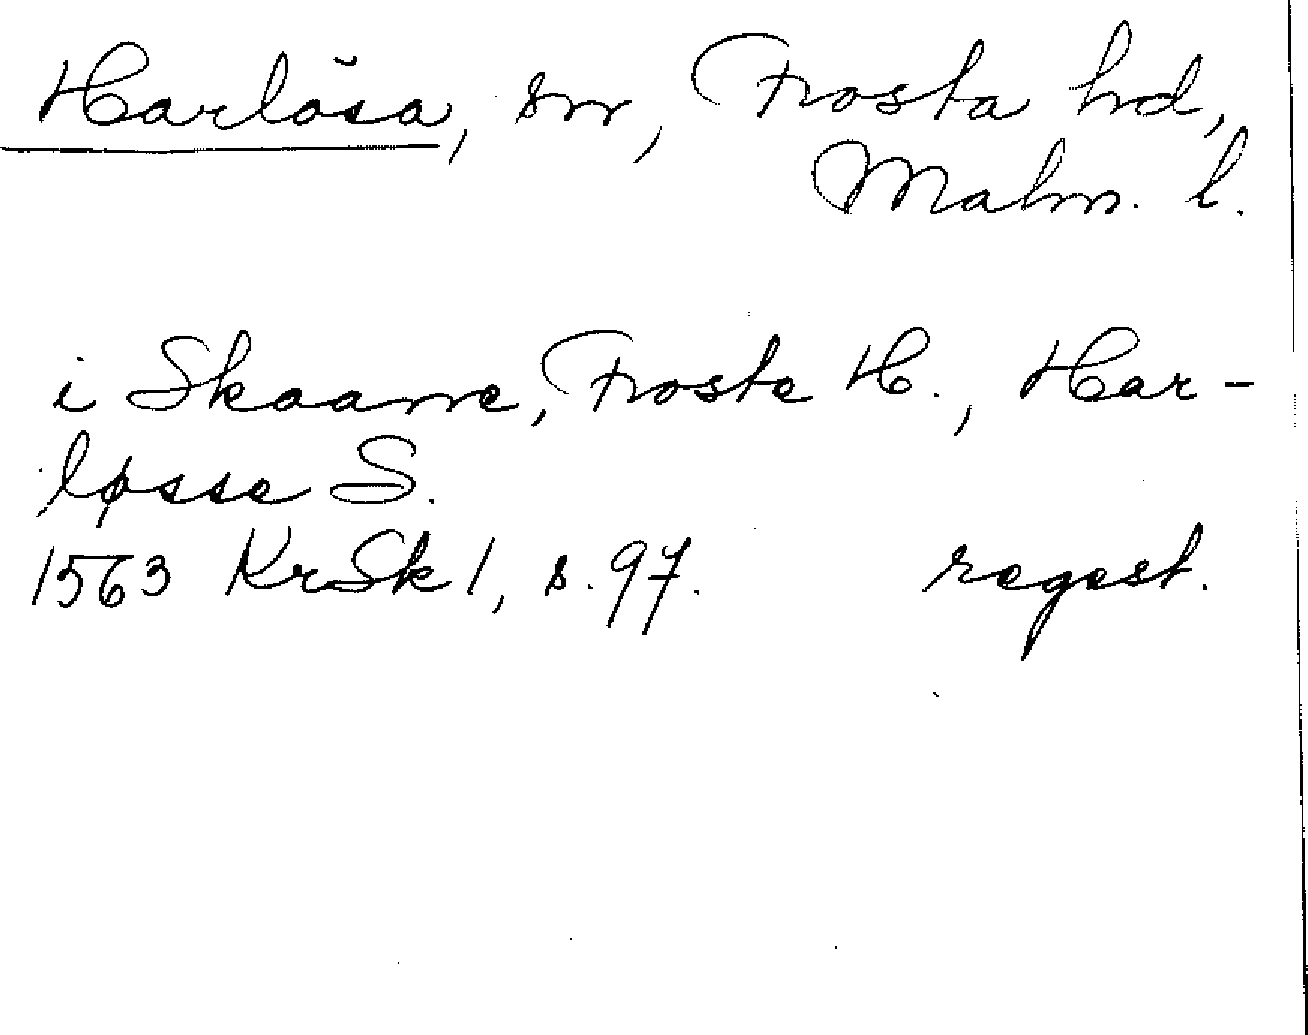 Harlösa, sn, Frosta hd,
Malm. l.
i Skaanne, Froste H., Har-
løsse S.
1563 KrSk 1, s. 97. regest.